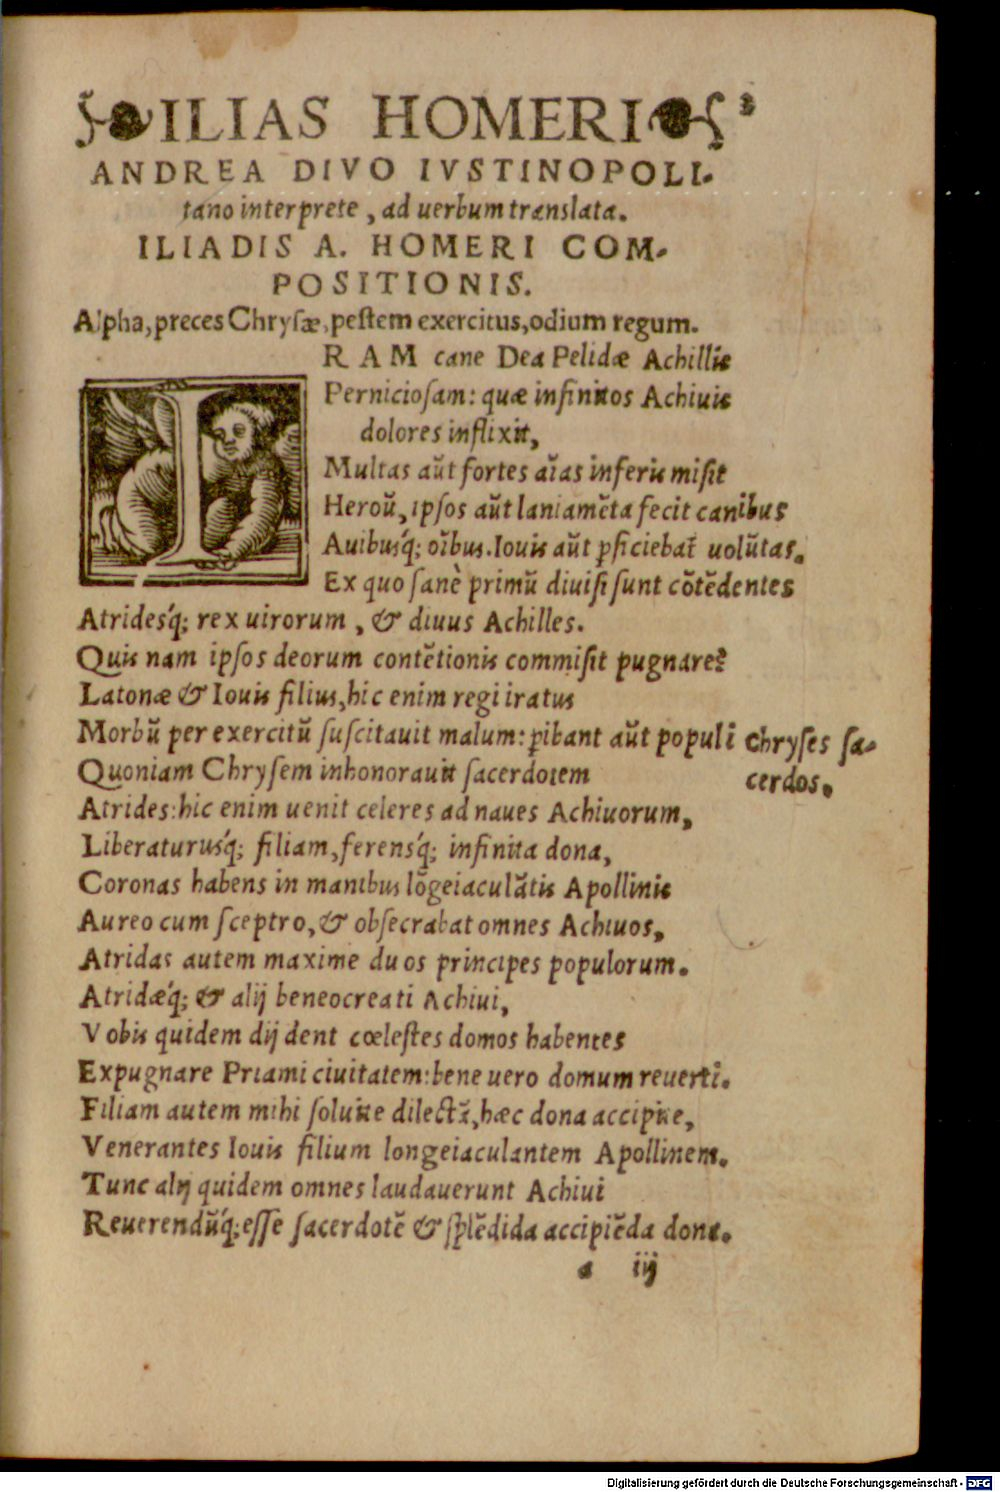 ILIAS HOMERI 3
ANDREA DIVO IVSTINOPOLI-
tano interprete, ad uerbum translata.
ILIADIS A. HOMERI COM-
POSITIONIS.
Alpha, preces Chrysæ, pestem exercitus, odium regum.
IRAM cane Dea Pelidæ Achillis
Perniciosam: quæ infinitos Achiuis
dolores inflixit,
Multas aũt fortes aĩas inferis misit
Heroũ, ipsos aũt laniamẽta fecit canibus
Auibusq́; oĩbus. Iouis aũt ꝑficiebat̃ uolũtas.
Ex quo sanè primũ diuisi sunt cõtẽdentes
Atridesq́; rex uirorum, & diuus Achilles.
Quis nam ipsos deorum contẽtionis commisit pugnare?
Latonæ & Iouis filius, hic enim regi iratus
Morbũ per exercitũ suscitauit malum: ꝑibant aũt populi
Chryses sa-
cerdos.
Quoniam Chrysem inhonorauit sacerdotem
Atrides: hic enim uenit celeres ad naues Achiuorum,
Liberaturusq́; filiam, ferensq́; infinita dona,
Coronas habens in manibus lõgeiaculãtis Apollinis
Aureo cum sceptro, & obsecrabat omnes Achiuos,
Atridas autem maxime duos principes populorum.
Atridæq́; & alij beneocreati Achiui,
Vobis quidem dij dent cœlestes domos habentes
Expugnare Priami ciuitatem: bene uero domum reuerti.
Filiam autem mihi soluite dilectã, hæc dona accipite,
Venerantes Iouis filium longeiaculantem Apollinem.
Tunc alij quidem omnes laudauerunt Achiui
Reuerendũq́; esse sacerdotẽ & splẽdida accipiẽda dona.
a iij
Digitalisierung gefördert durch die Deutsche Forschungsgemeinschaft - DFG